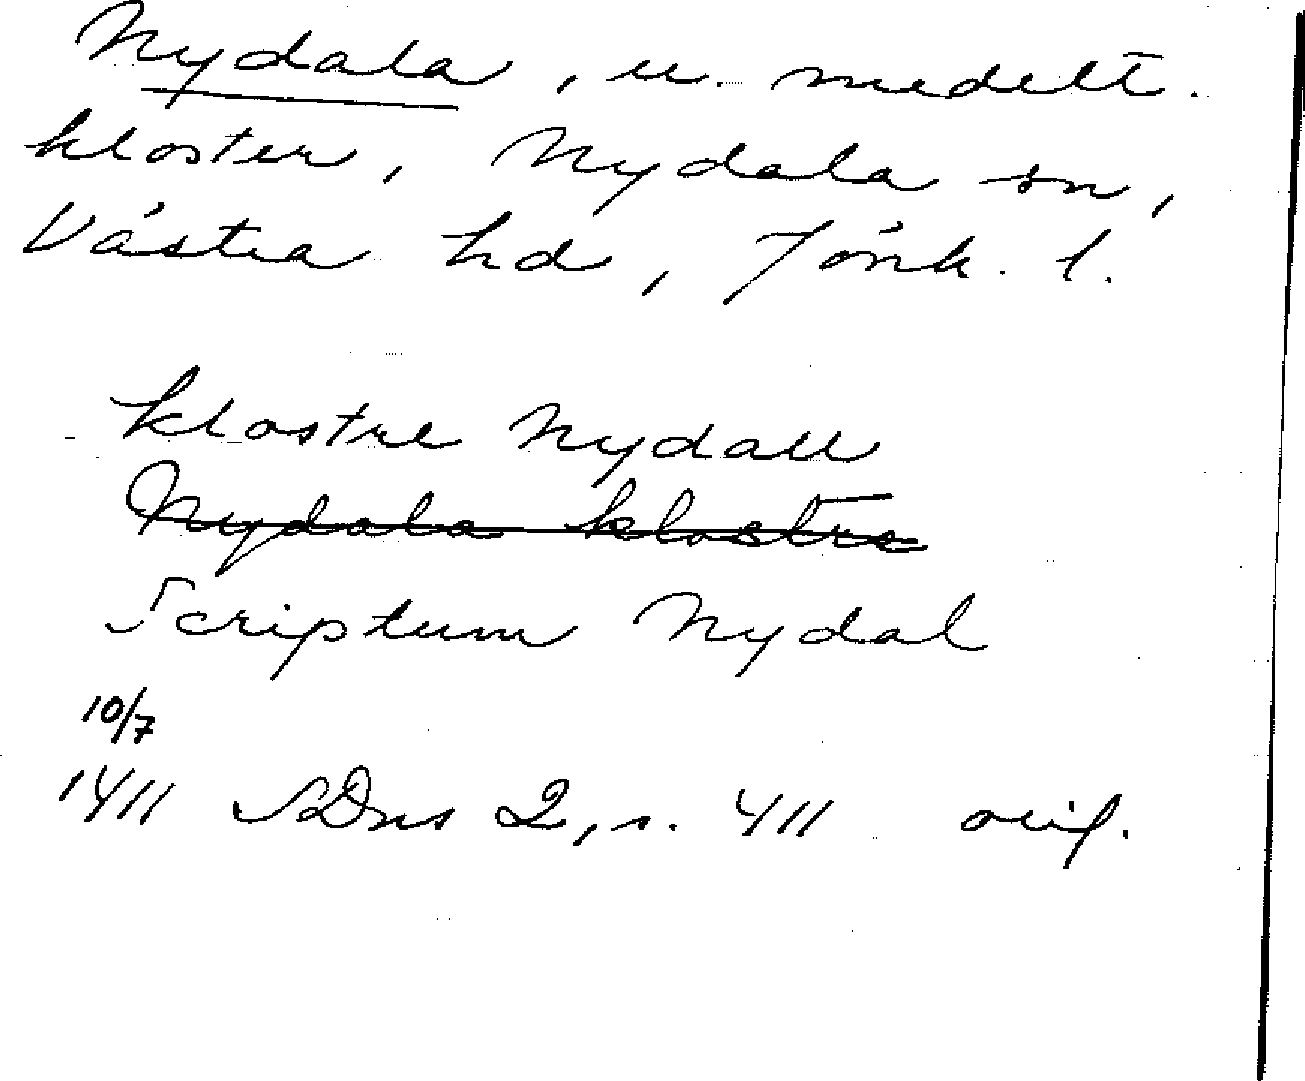 Nydala, u. medelt.
kloster, Nydala sn,
Västra hd, Jönk. l.
klostre Nydale
Nydala klostre
Scriptum Nydal
10/7
1411 SDns 2, s. 411 orig.